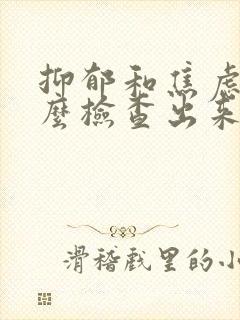 抑郁和焦虑
麽檢查出来
滑稽戏里的小